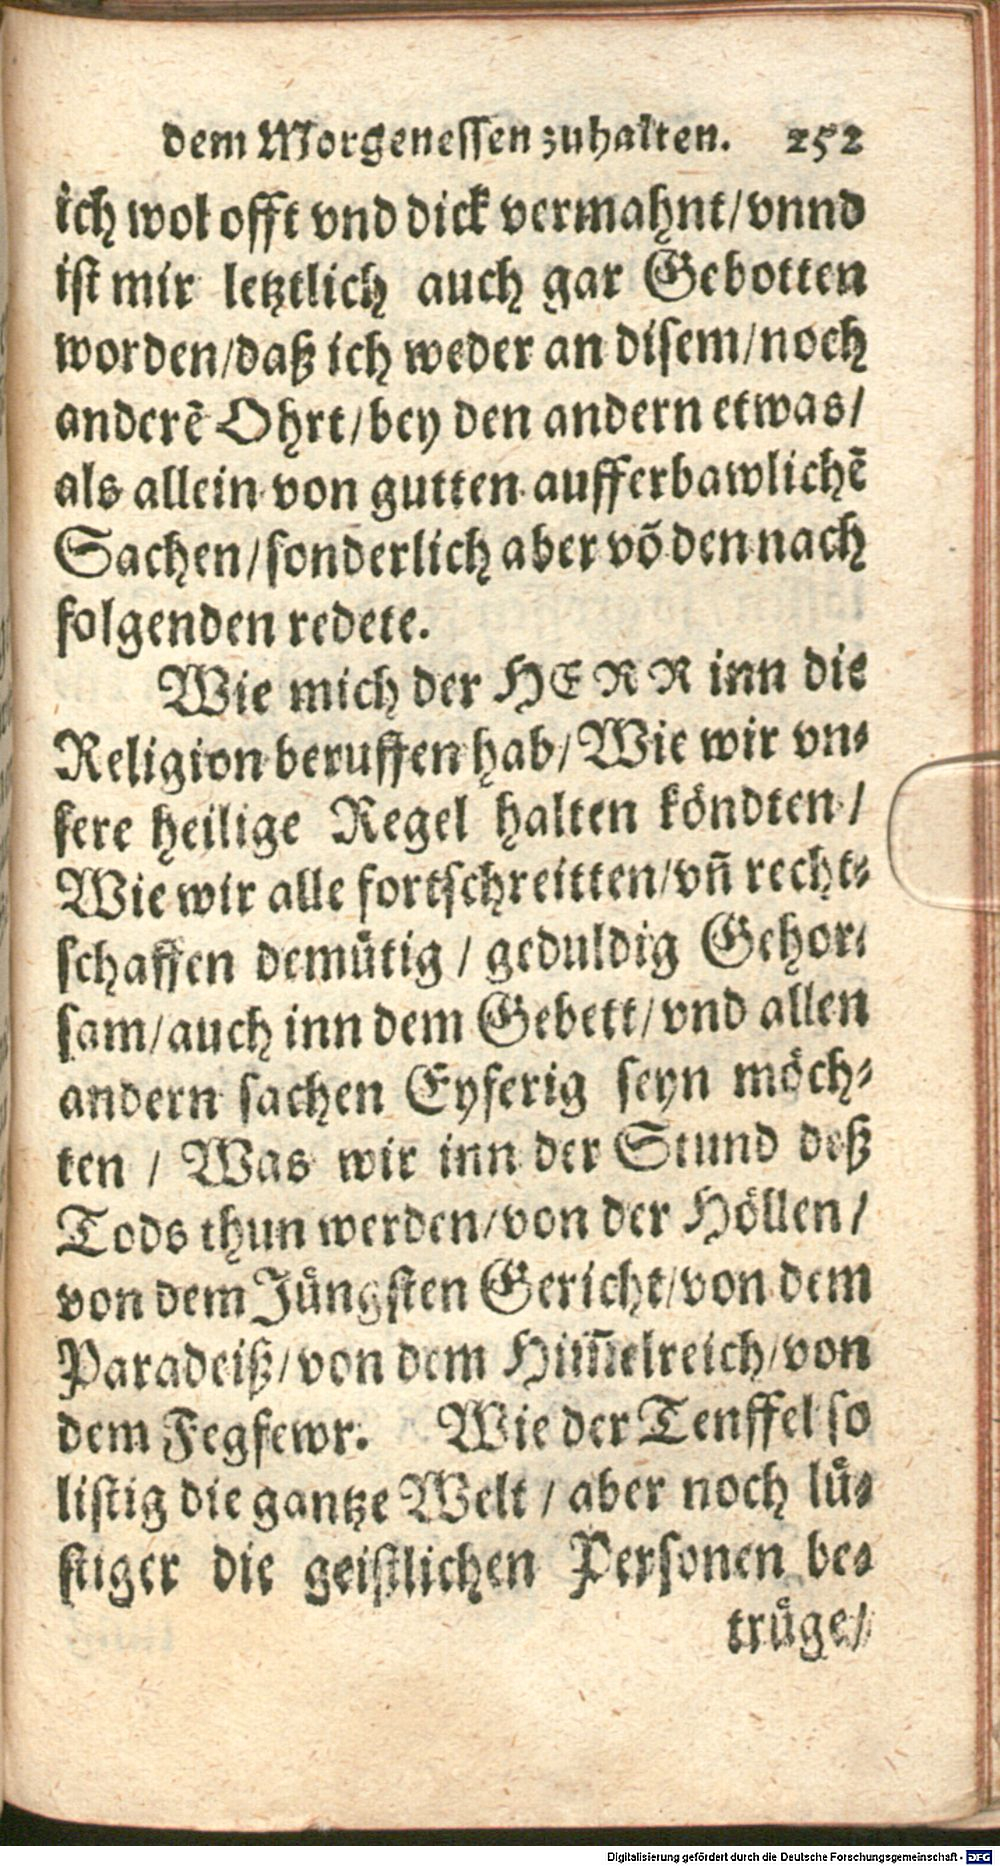 dem Morgenessen zuhalten. 252
ich wol offt vnd dick vermahnt/vnnd
ist mir letztlich auch gar Gebotten
worden/daß ich weder an disem/noch
anderẽ Ohrt/bey den andern etwas/
als allein von gutten aufferbawlichẽ
Sachen/sonderlich aber võ den nach
folgenden redete.
Wie mich der HERR inn die
Religion beruffen hab/Wie wir vn⸗
sere heilige Regel halten köndten/
Wie wir alle fortschreitten/vñ recht⸗
schaffen demütig / geduldig Gehor⸗
sam/auch inn dem Gebett/vnd allen
andern sachen Eyferig seyn möch⸗
ten / Was wir inn der Stund deß
Tods thun werden/von der Höllen/
von dem Jüngsten Gericht/von dem
Paradeiß/von dem Him̃elreich/von
dem Fegfewr. Wie der Tenffel so
listig die gantze Welt / aber noch lü⸗
stiger die geistlichen Personen be⸗
trüge/
Digitalisierung gefördert durch die Deutsche Forschungsgemeinschaft - DFG